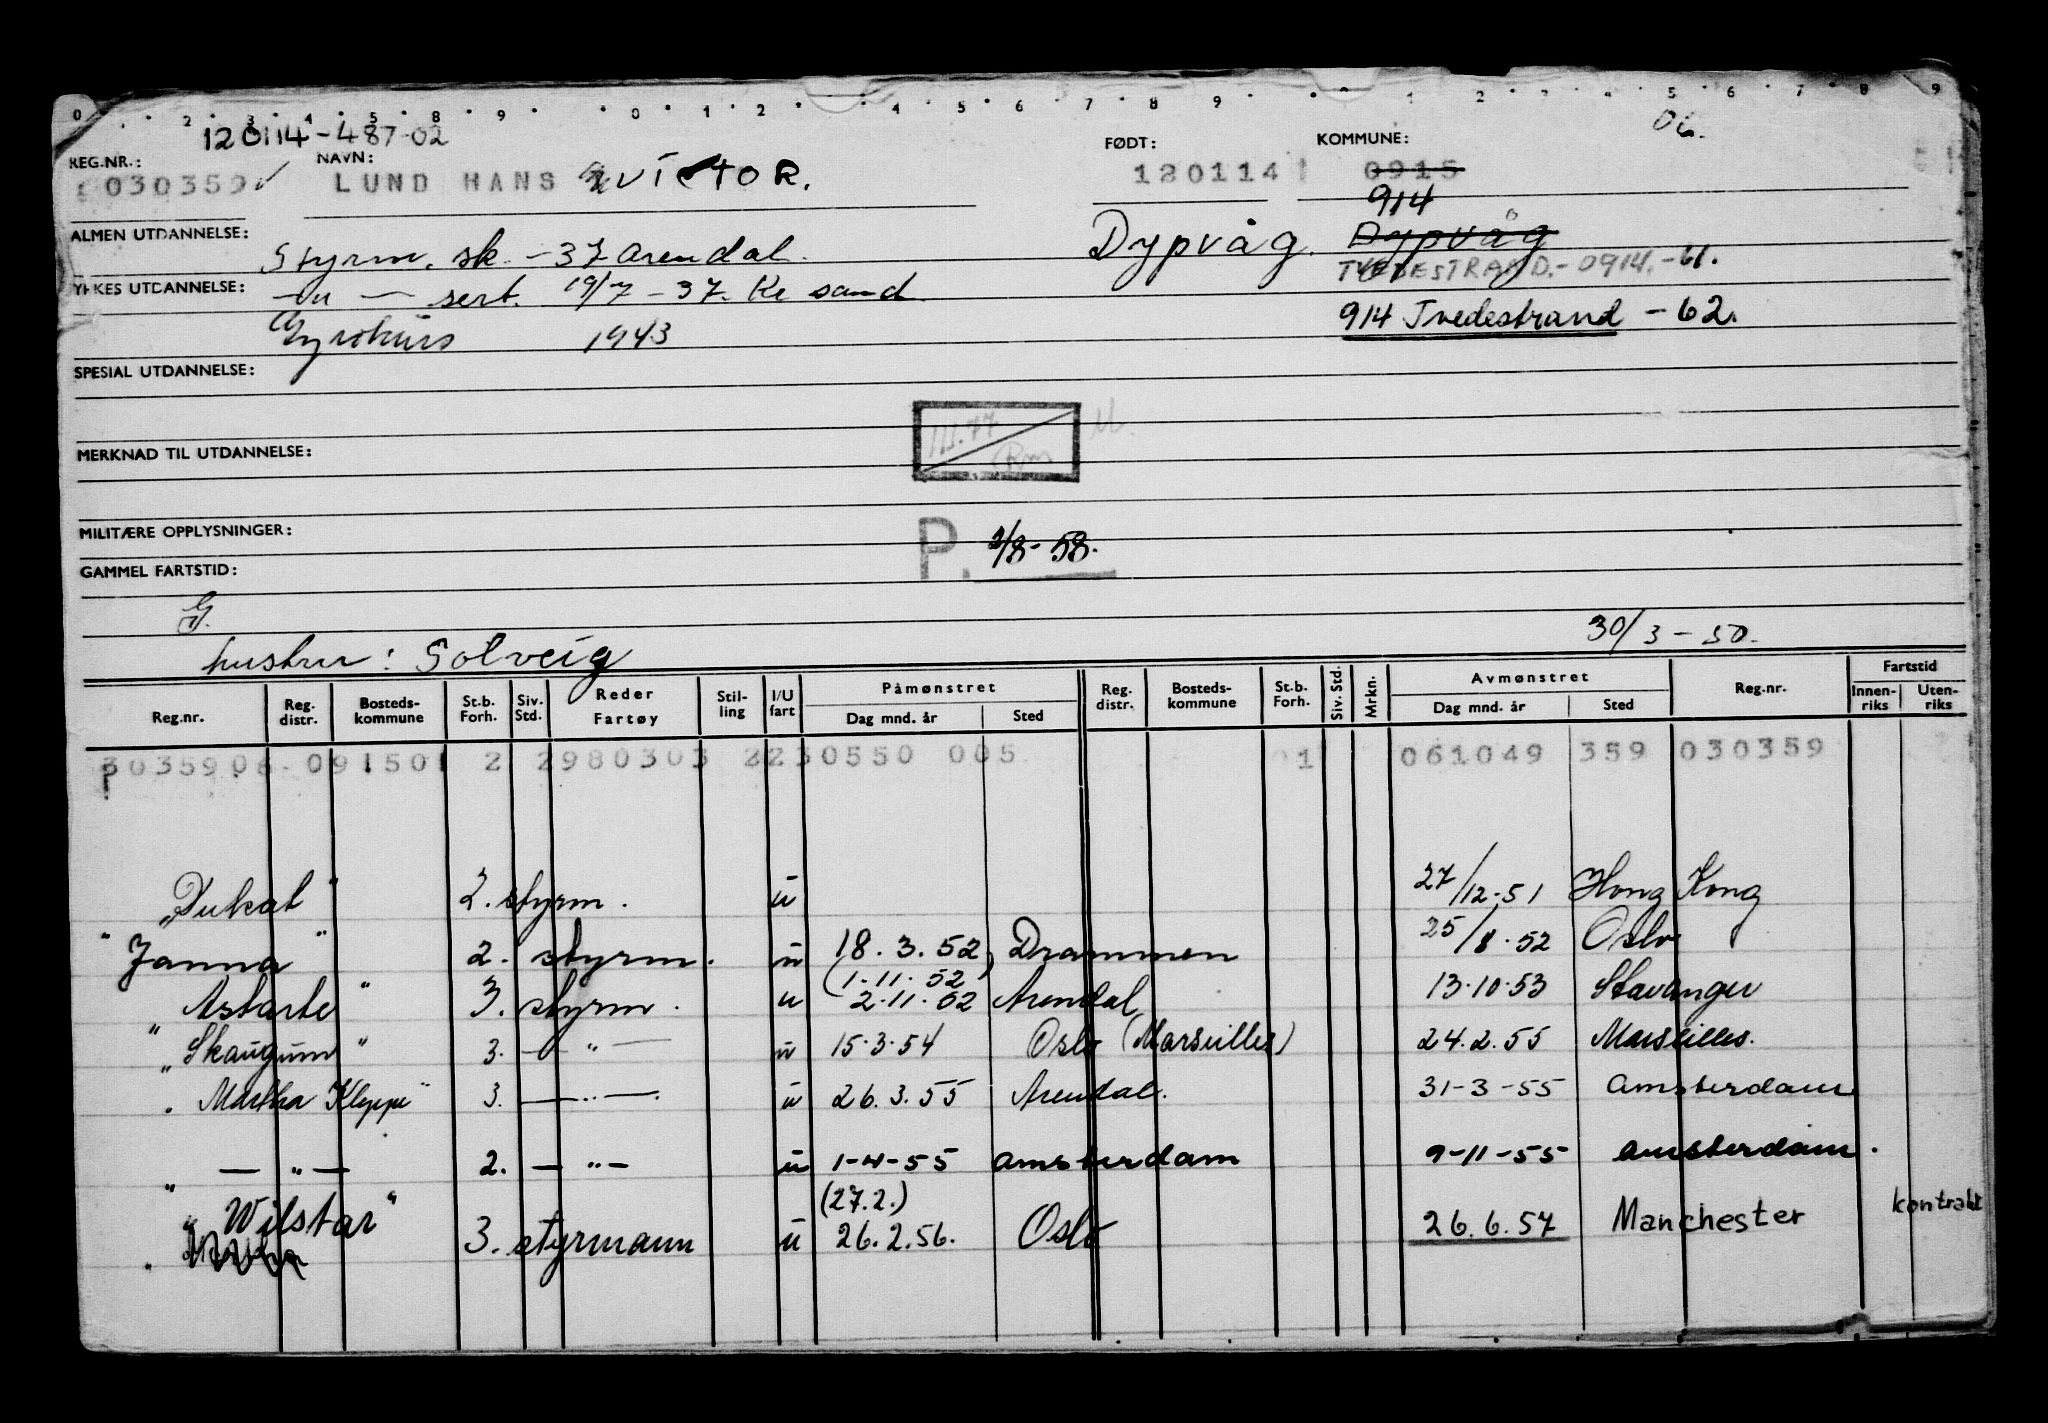 120114-487-02
06.
REG.NR.: NAVN: FØDT: KOMMUNE:
030359 LUND HANS VICTOR. 120114 0915
914
ALMEN UTDANNELSE: Styrm. sk. -37 Arendal. Dypvåg. Dypvåg
TVEDESTRAND.-0914.-61.
YRKES UTDANNELSE: -"- sert. 19/7-37. Kr sand
914 Tvedestrand -62.
Gyrokurs 1943
SPESIAL UTDANNELSE:
III.77
MERKNAD TIL UTDANNELSE:
MILITÆRE OPPLYSNINGER:
P. 2/8-58.
GAMMEL FARTSTID:
G.
30/3-50.
hustru: Solveig
Reg.nr. Reg. distr. Bosteds-kommune St.b. Forh. Siv. Std. Reder Fartøy Stil-ling I/U fart Påmønstret Dag mnd. år Sted Reg. distr. Bosteds-kommune St.b. Forh. Siv. Std. Mrkn. Avmønstret Dag mnd. år Sted Reg.nr. Fartstid Innen-riks Uten-riks
3035906 091501 2 2980303 2230550 005 01 061049 359 030359
"Dukat" 2. styrm. u 27/12-51 Hong Kong
"Janna" 2. styrm. u 18.3.52, Drammen 25/8.52 Oslo
(1.11.52)
"Astarte" 3. styrm. u 2.11.52 Arendal 13.10.53 Stavanger
"Skaugum" 3. -"- u 15.3.54 Oslo (Marseilles) 24.2.55 Marseilles.
"Martha Kleppe" 3. -"- u 26.3.55 Arendal. 31-3-55 Amsterdam
-"- 2. -"- u 1-4-55 Amsterdam 9-11-55 Amsterdam.
(27.2.)
"Wilstar" 3. styrmann u 26.2.56. Oslo 26.6.57 Manchester kontrakt